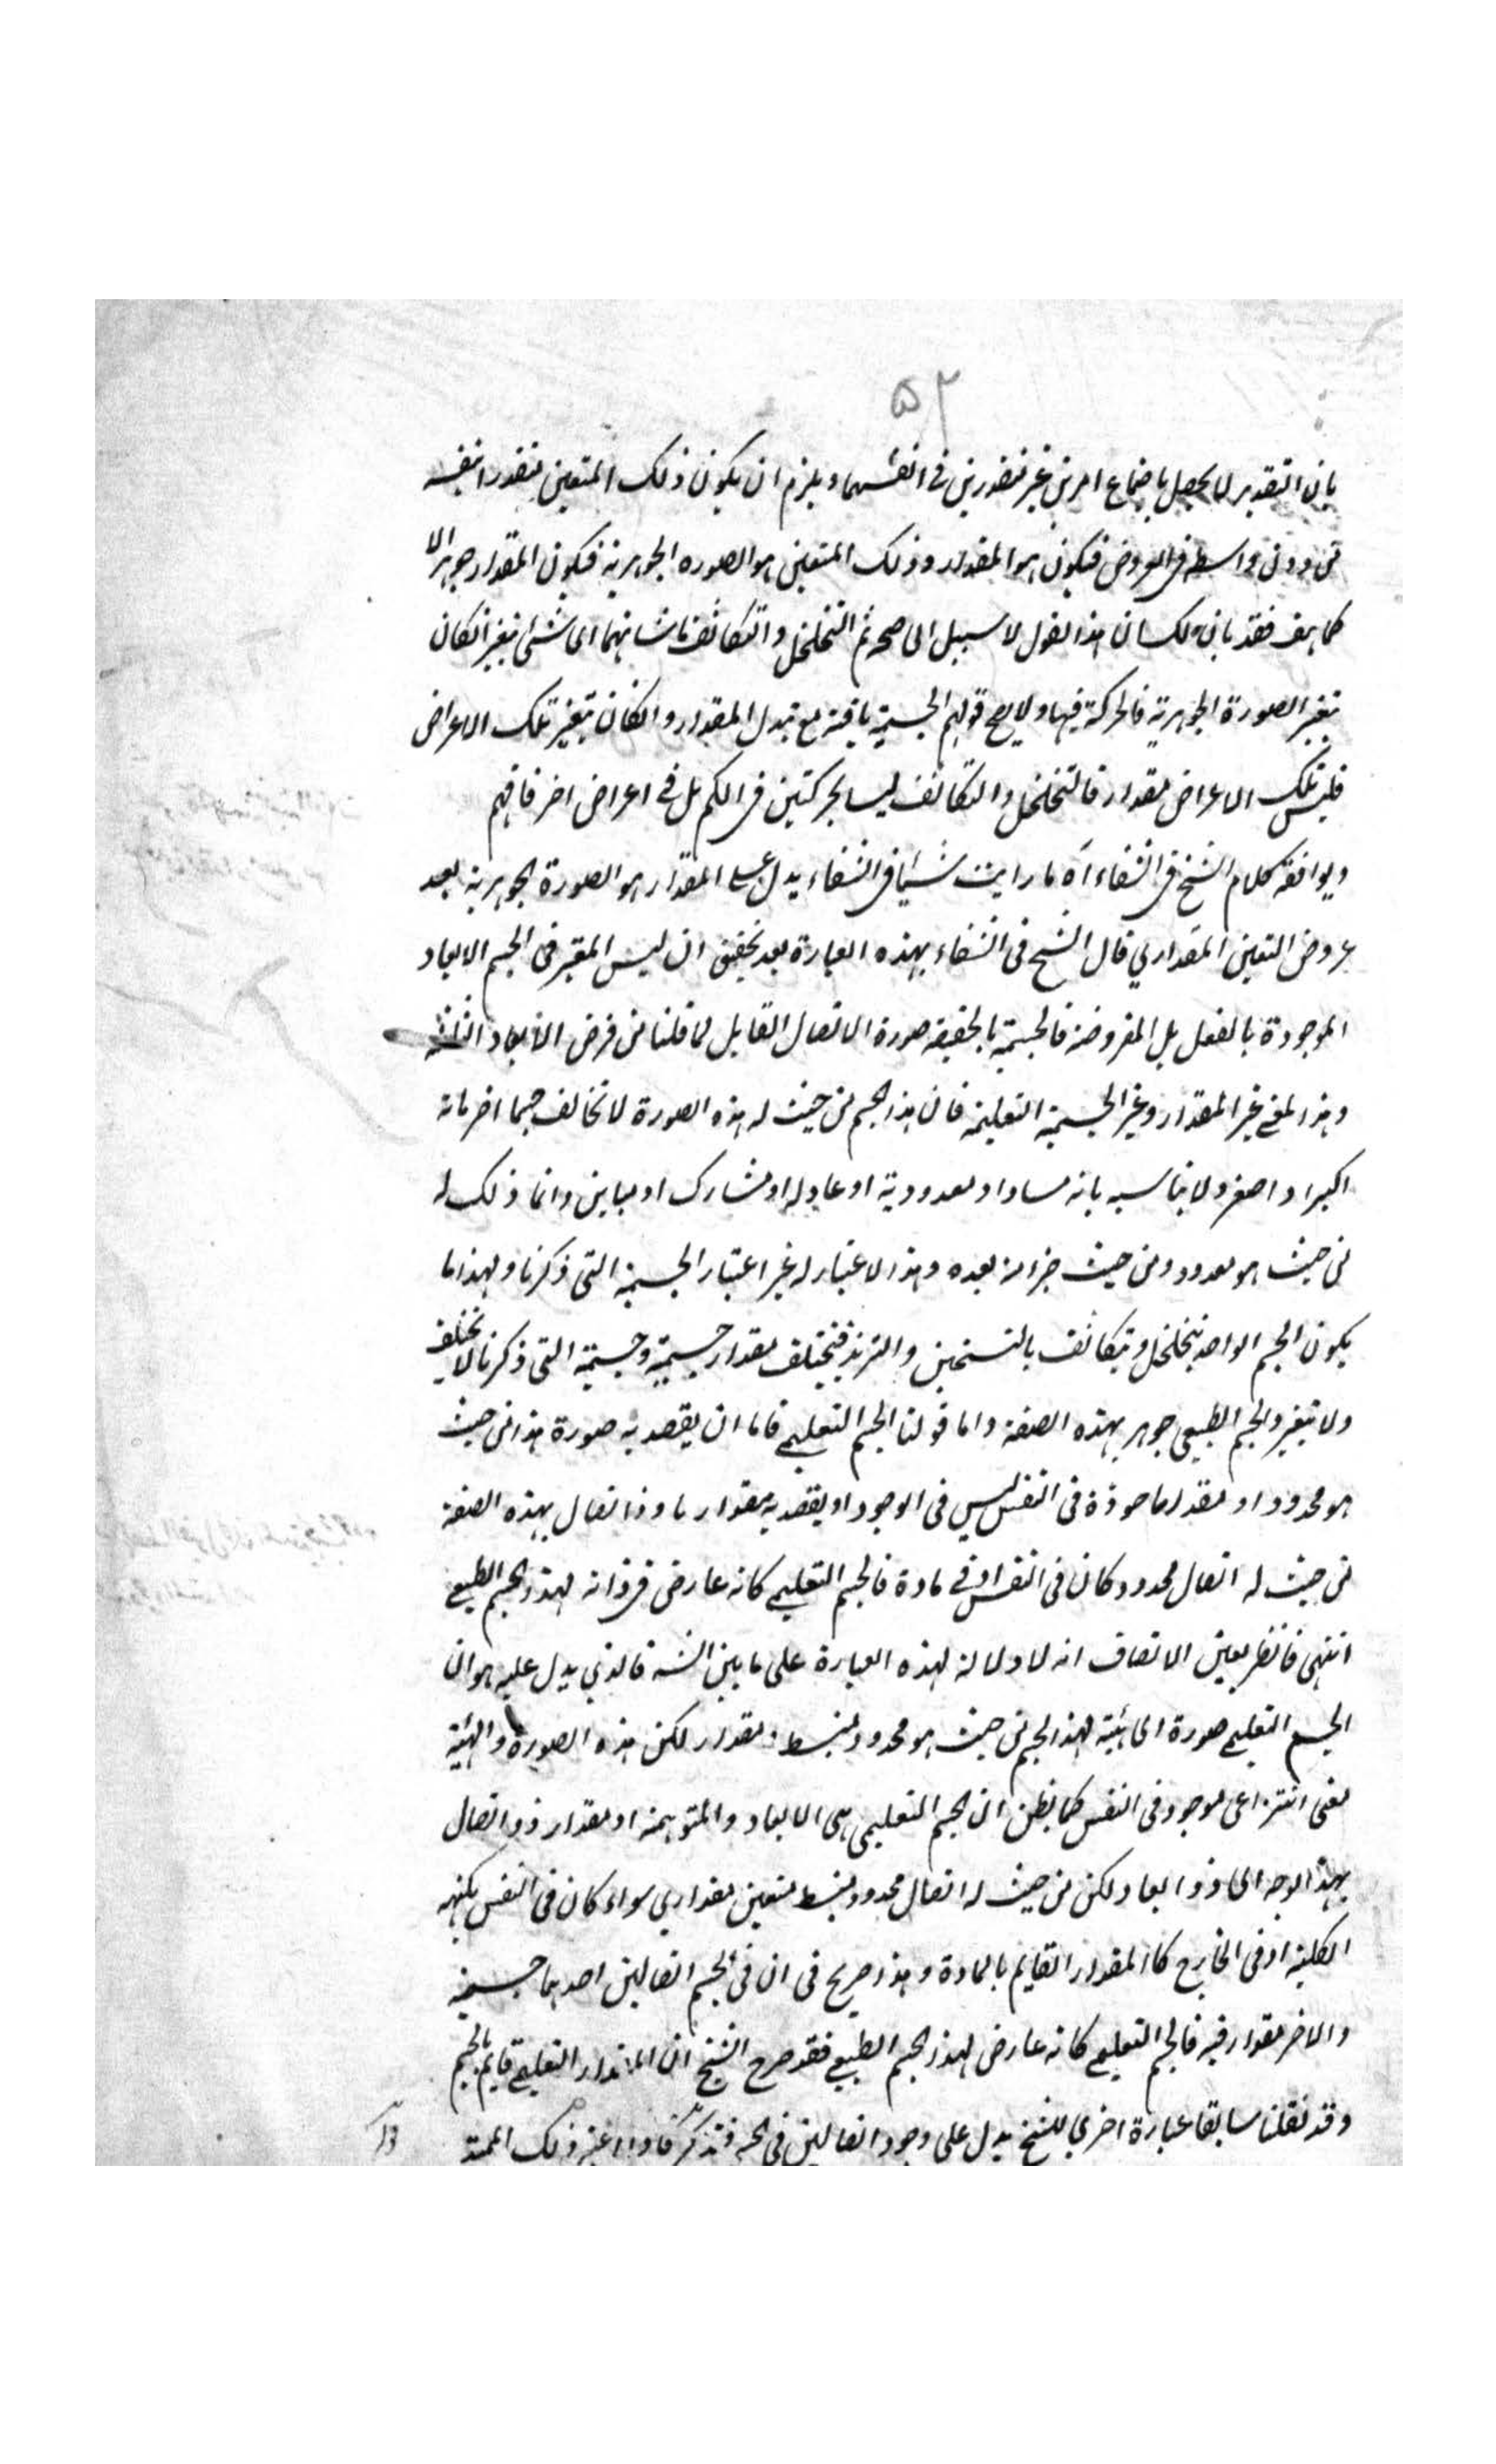 ٥٢
بان التقدير لا يحصل باجتماع امرين غير متقدرين في انفسهما ويلزم ان يكون ذلك المتعين متقدرا بنفسه
من دون واسطة في العروض فيكون هو المقدار وذلك المتعين هو الصوره الجوهرية فيكون المقدار جوهرا لا
كما هف فقد بان لك ان هذا القول لا سبيل الى صحته ثم التخلخل والتكاثف ما شانهما اى شئ يتغير انكان
بتغير الصورة الجوهرية فالحركة فيها ولا يصح قولهم الجسمية باقية مع تبدل المقدار وانكان بتغير تلك الاعراض
فليس تلك الاعراض مقدار فالتخلخل والتكاثف ليسا بحركتين فى الكم بل في اعراض اخر فافهم
ويوافقه كلام الشيخ فى الشفاء آه ما رايت شيئا فى الشفاء يدل على المقدار هو الصورة الجوهرية بعد
عروض التعين المقداري قال الشيخ فى الشفاء بهذه العبارة بعد تحقيق ان ليس المعتبر فى الجسم الابعاد
الموجودة بالفعل بل المفروضة فالجسمية بالحقيقة صورة الاتصال القابل لما قلنا من فرض الابعاد الثلثة
وهذا المعنى غير المقدار وغير الجسمية التعليمية فان هذا الجسم من حيث له هذه الصورة لا تخالف جسما اخر بانه
اكبر او اصغر ولا يناسبه بانه مساو او معدود به او عاد له او مشارك او مباين وانما ذلك له
من حيث هو معدود ومن حيث جزء منه يعده وهذا الاعتبار له غير اعتبار الجسمية التى ذكرنا ولهذا ما
يكون الجسم الواحد يتخلخل ويتكاثف بالتسخين والتبريد فيختلف مقدار جسمية وجسمية التى ذكرنا لا تختلف
ولا يتغير والجسم الطبيعي جوهر بهذه الصفة واما قولنا الجسم التعليمي فاما ان يقصد به صورة هذا من حيث
هو محدود او مقدر ماخوذة فى النفس ليس فى الوجود او يقصد به مقدار ما وذا اتصال بهذه الصفة
من حيث له اتصال محدود كان فى النفس او في مادة فالجسم التعليمي كانه عارض فى ذاته لهذا الجسم الطبيعي
انتهى فانظر بعين الانصاف انه لا دلالة لهذه العبارة على ما بين الشه فالذي يدل عليه هو ان
الجسم التعليمي صورة اى هيئة لهذا الجسم من حيث هو محدود منبسط ومقدار لكن هذه الصورة والهيئة
معنى انتزاعى موجود فى النفس كما يظن ان الجسم التعليمى هى الابعاد والمتوهمة او مقدار ذو اتصال
بهذا الوجه اى ذو ابعاد لكن من حيث له اتصال محدود منبسط متعين مقداري سواء كان فى النفس بكنهه
الكلية او فى الخارج كالمقدار القايم بالمادة وهذا صريح فى ان فى الجسم اتصالين احدهما جسمية
والاخر مقدار فيه فالجسم التعليمي كانه عارض لهذا الجسم الطبيعي فقد صرح الشيخ ان المقدار التعليمي قايم بالجسم
وقد نقلنا سابقا عبارة اخرى للشيخ يدل على وجود اتصالين فى الجسم فتذكر ذلك